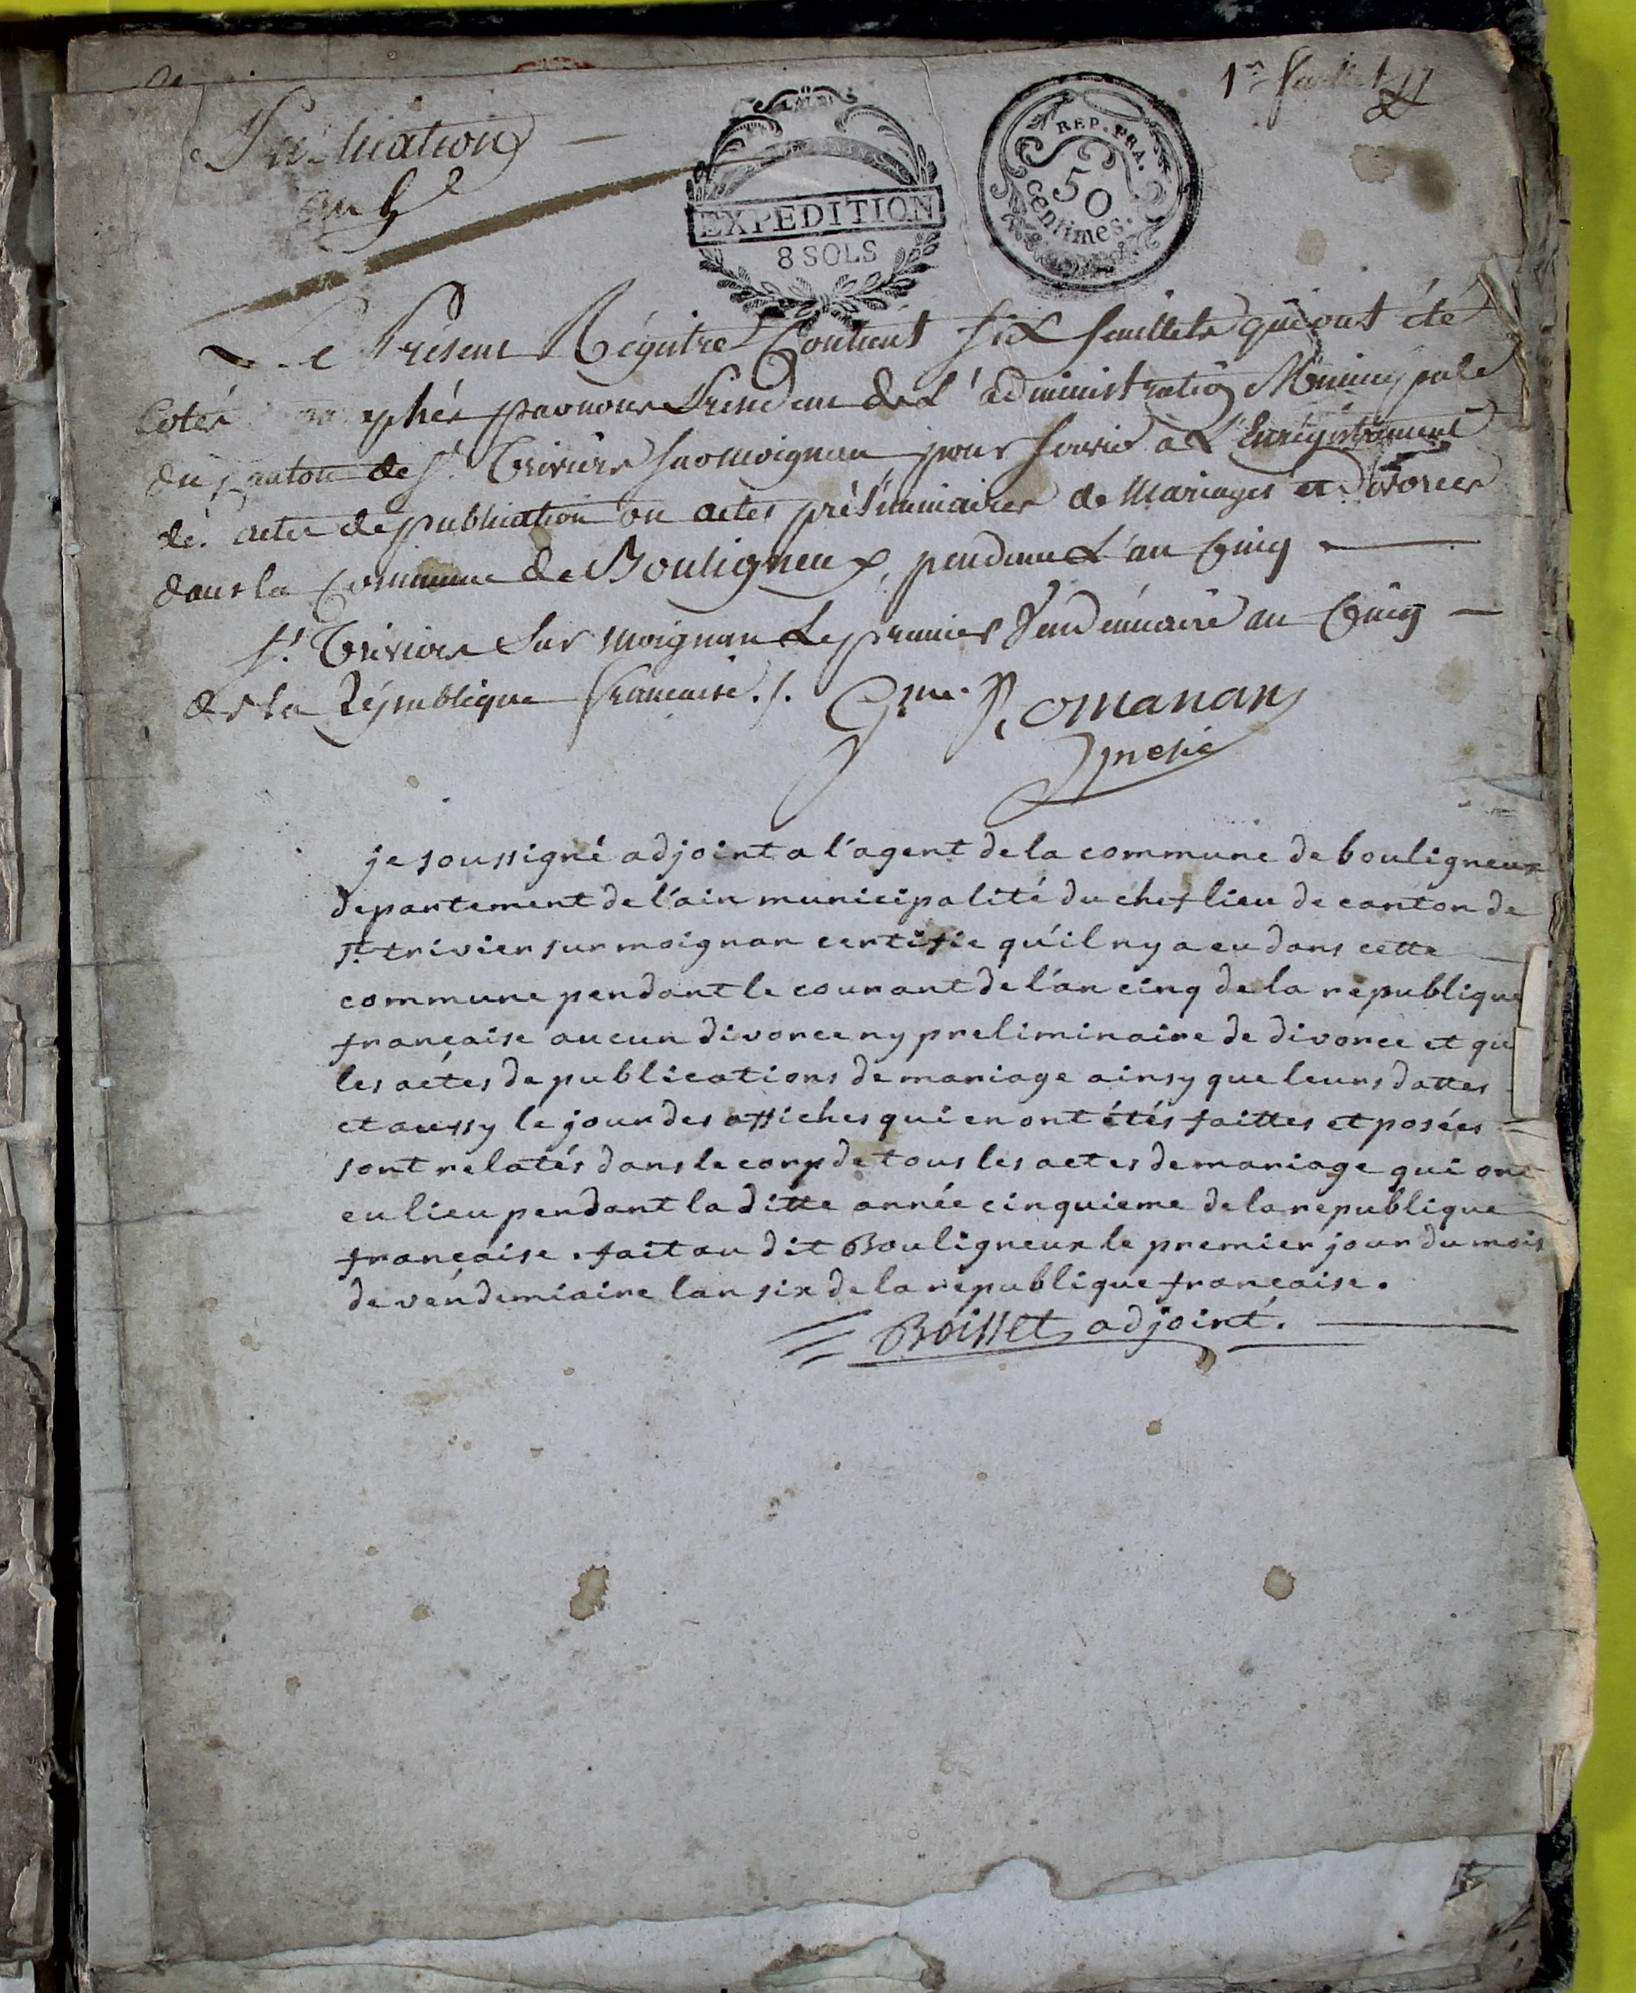 Publication
an 5e
1er feuillet
EXPEDITION
8 SOLS
REP. FRA.
50
centimes.
Le Présent Régistre Contient six feuillets qui ont été
Cotés paraphés par nous Président de L'administration Municipale
du Canton de St. Trivier sur moignan pour servir à L'Enregistrement
des actes de publication ou actes préliminaires de Mariages et divorces
dans la Commune de Bouligneux, pendant L'an Cinq
St. Trivier Sur moignan Le premier Vendémiaire an Cinq
de la République francaise ./. Gme. Romanans
presid
je soussigné adjoint a l'agent de la commune de bouligneux
departement de l'ain municipalité du chef lieu de canton de
st. trivier sur moignan certifie qu'il ny a eu dans cette
commune pendant le courant de l'an cinq de la republique
française aucun divorce ny preliminaire de divorce et qu
les actes de publications de mariage ainsy que leurs dattes
et aussy le jour des affiches qui en ont étés faittes et posées
sont relatés dans le corp de tous les actes de mariage qui ont
eu lieu pendant la ditte année cinquieme de la republique
française . fait au dit Bouligneux le premier jour du mois
de vendemiaire l'an six de la republique française.
Boisset adjoint.